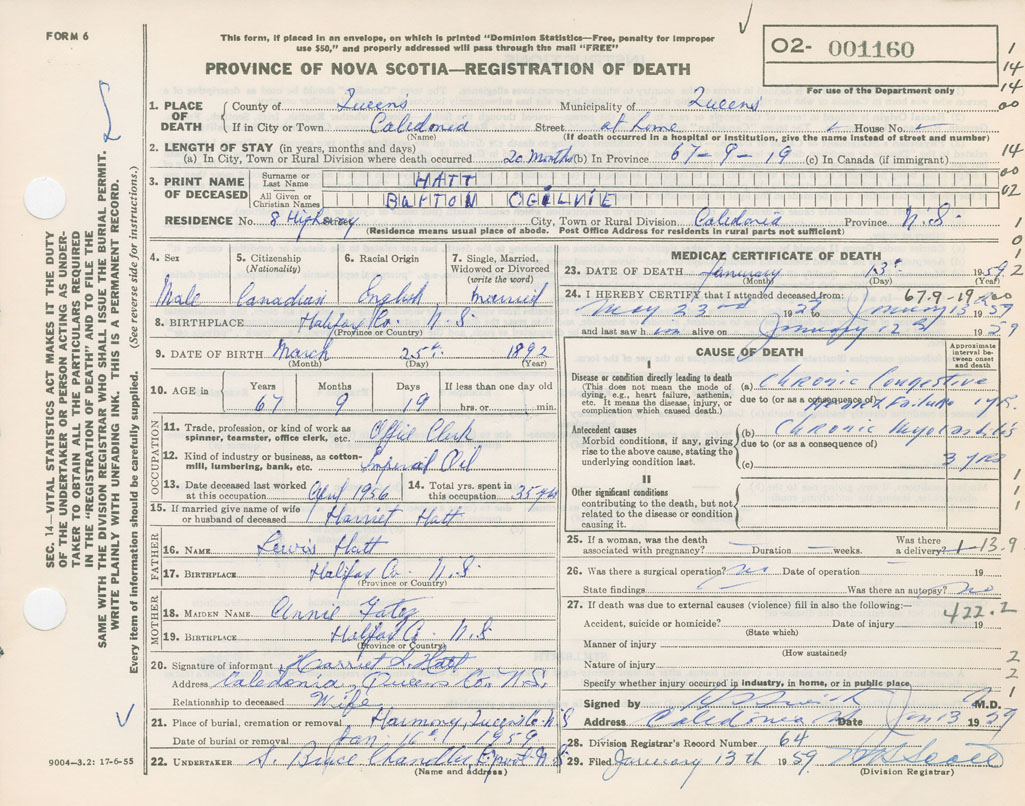 FORM 6
This form, if placed in an envelope, on which is printed "Dominion Statistics—Free, penalty for improper
use $50," and properly addressed will pass through the mail "FREE"
PROVINCE OF NOVA SCOTIA—REGISTRATION OF DEATH
O2- 001160
For use of the Department only
SEC. 14—VITAL STATISTICS ACT MAKES IT THE DUTY
OF THE UNDERTAKER OR PERSON ACTING AS UNDER-
TAKER TO OBTAIN ALL THE PARTICULARS REQUIRED
IN THE "REGISTRATION OF DEATH" AND TO FILE THE
SAME WITH THE DIVISION REGISTRAR WHO SHALL ISSUE THE BURIAL PERMIT.
WRITE PLAINLY WITH UNFADING INK. THIS IS A PERMANENT RECORD.
Every item of information should be carefully supplied. (See reverse side for instructions.)
1. PLACE OF DEATH County of Queens Municipality of Queens
If in City or Town Caledonia Street at home House No.
(Name) (If death occurred in a hospital or institution, give the name instead of street and number)
2. LENGTH OF STAY (in years, months and days)
(a) In City, Town or Rural Division where death occurred 20 months (b) In Province 67-9-19 (c) In Canada (if immigrant)
3. PRINT NAME OF DECEASED Surname or Last Name HATT
All Given or Christian Names BARTON OGILVIE
RESIDENCE No. 8 Highway City, Town or Rural Division Caledonia Province N.S.
(Residence means usual place of abode. Post Office Address for residents in rural parts not sufficient)
4. Sex 5. Citizenship (Nationality) 6. Racial Origin 7. Single, Married, Widowed or Divorced (write the word)
Male Canadian English Married
8. BIRTHPLACE Halifax Co. N.S.
(Province or Country)
9. DATE OF BIRTH March 25th 1892
(Month) (Day) (Year)
10. AGE in Years Months Days If less than one day old
67 9 19 hrs. or min.
OCCUPATION
11. Trade, profession, or kind of work as spinner, teamster, office clerk, etc. Office Clerk
12. Kind of industry or business, as cotton-mill, lumbering, bank, etc. Imperial Oil
13. Date deceased last worked at this occupation April 1956 14. Total yrs. spent in this occupation 35 yrs
15. If married give name of wife or husband of deceased Harriet Hatt
FATHER
16. NAME Lewis Hatt
17. BIRTHPLACE Halifax Co. N.S.
(Province or Country)
MOTHER
18. MAIDEN NAME Annie
19. BIRTHPLACE Halifax Co. N.S
(Province or Country)
20. Signature of informant Harriet L. Hatt
Address Caledonia, Queens Co. N.S.
Relationship to deceased Wife
21. Place of burial, cremation or removal Harmony, Queens Co. N.S
Date of burial or removal Jan. 16th 1959
22. UNDERTAKER S. Bruce Chandler L'pool N.S
(Name and address)
9004—3.2: 17-6-55
MEDICAL CERTIFICATE OF DEATH
23. DATE OF DEATH January 13th 1959
(Month) (Day) (Year)
24. I HEREBY CERTIFY that I attended deceased from: 67.9-19
May 23rd 19 to January 13 1959
and last saw him alive on January 12th 1959
CAUSE OF DEATH
Approximate interval between onset and death
I
Disease or condition directly leading to death (a) Chronic Congestive
(This does not mean the mode of dying, e.g., heart failure, asthenia, etc. It means the disease, injury, or complication which caused death.)
due to (or as a consequence of) Heart Failure 1 yr.
Antecedent causes (b) Chronic Myocarditis
Morbid conditions, if any, giving rise to the above cause, stating the underlying condition last.
due to (or as a consequence of)
(c) 3 yrs
II
Other significant conditions
contributing to the death, but not related to the disease or condition causing it.
25. If a woman, was the death associated with pregnancy? Duration weeks. Was there a delivery? 1-13.9
26. Was there a surgical operation? no Date of operation 19
State findings Was there an autopsy? no
27. If death was due to external causes (violence) fill in also the following:—
422.2
Accident, suicide or homicide? Date of injury 19
(State which)
Manner of injury
(How sustained)
Nature of injury
Specify whether injury occurred in industry, in home, or in public place.
Signed by M.D.
Address Caledonia Date Jan 13 1959
28. Division Registrar's Record Number 64
29. Filed January 13th 1959 Scott
(Division Registrar)
1
14
14
00
14
00
02